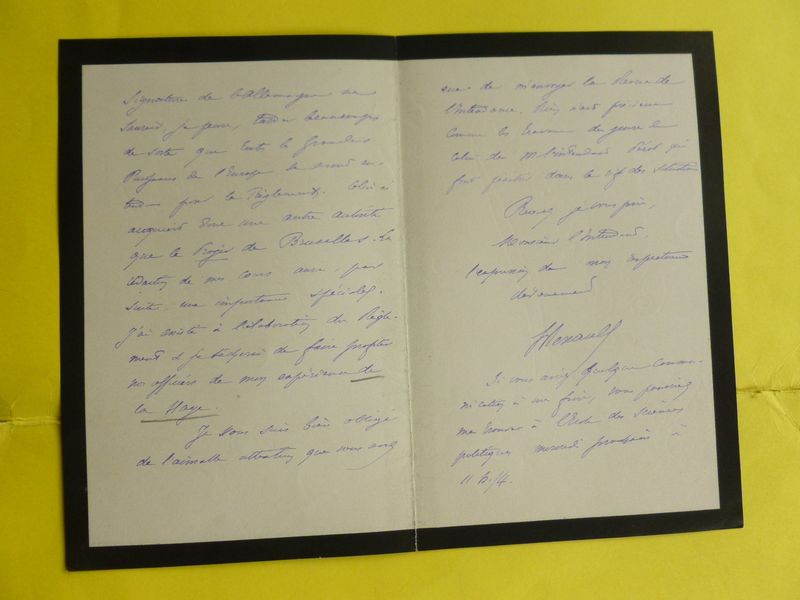 Signature de l'Allemagne ne
saurait, je pense, tarder beaucoup
de sorte que toutes les Grandes
Puissances de l'Europe
pour le Règlement. Celui-ci
acquiert donc une autre autorité
que le Projet de Bruxelles. La
rédaction de mes cours aura, par
suite, une importance spéciale.
J'ai assisté à l'élaboration du Règle-
ment & je tâcherai de faire profiter
nos officiers de mon expérience de
la Haye.
Je vous suis bien obligé
de l'aimable attention que vous avez
eue de m'envoyer la Revue de
l'Intendance. Rien n'est précieux
comme les travaux du genre de
celui de M. l'intendant qui
font pénétrer dans le vif des situations
Recevez, je vous prie,
Monsieur l'Intendant,
l'expression de mon respectueux
dévouement
L Renault
Si vous aviez quelque commu-
nication à me faire, vous pourriez
me trouver à l'Ecole des Sciences
politiques mercredi prochain à
11 h. 1/4.